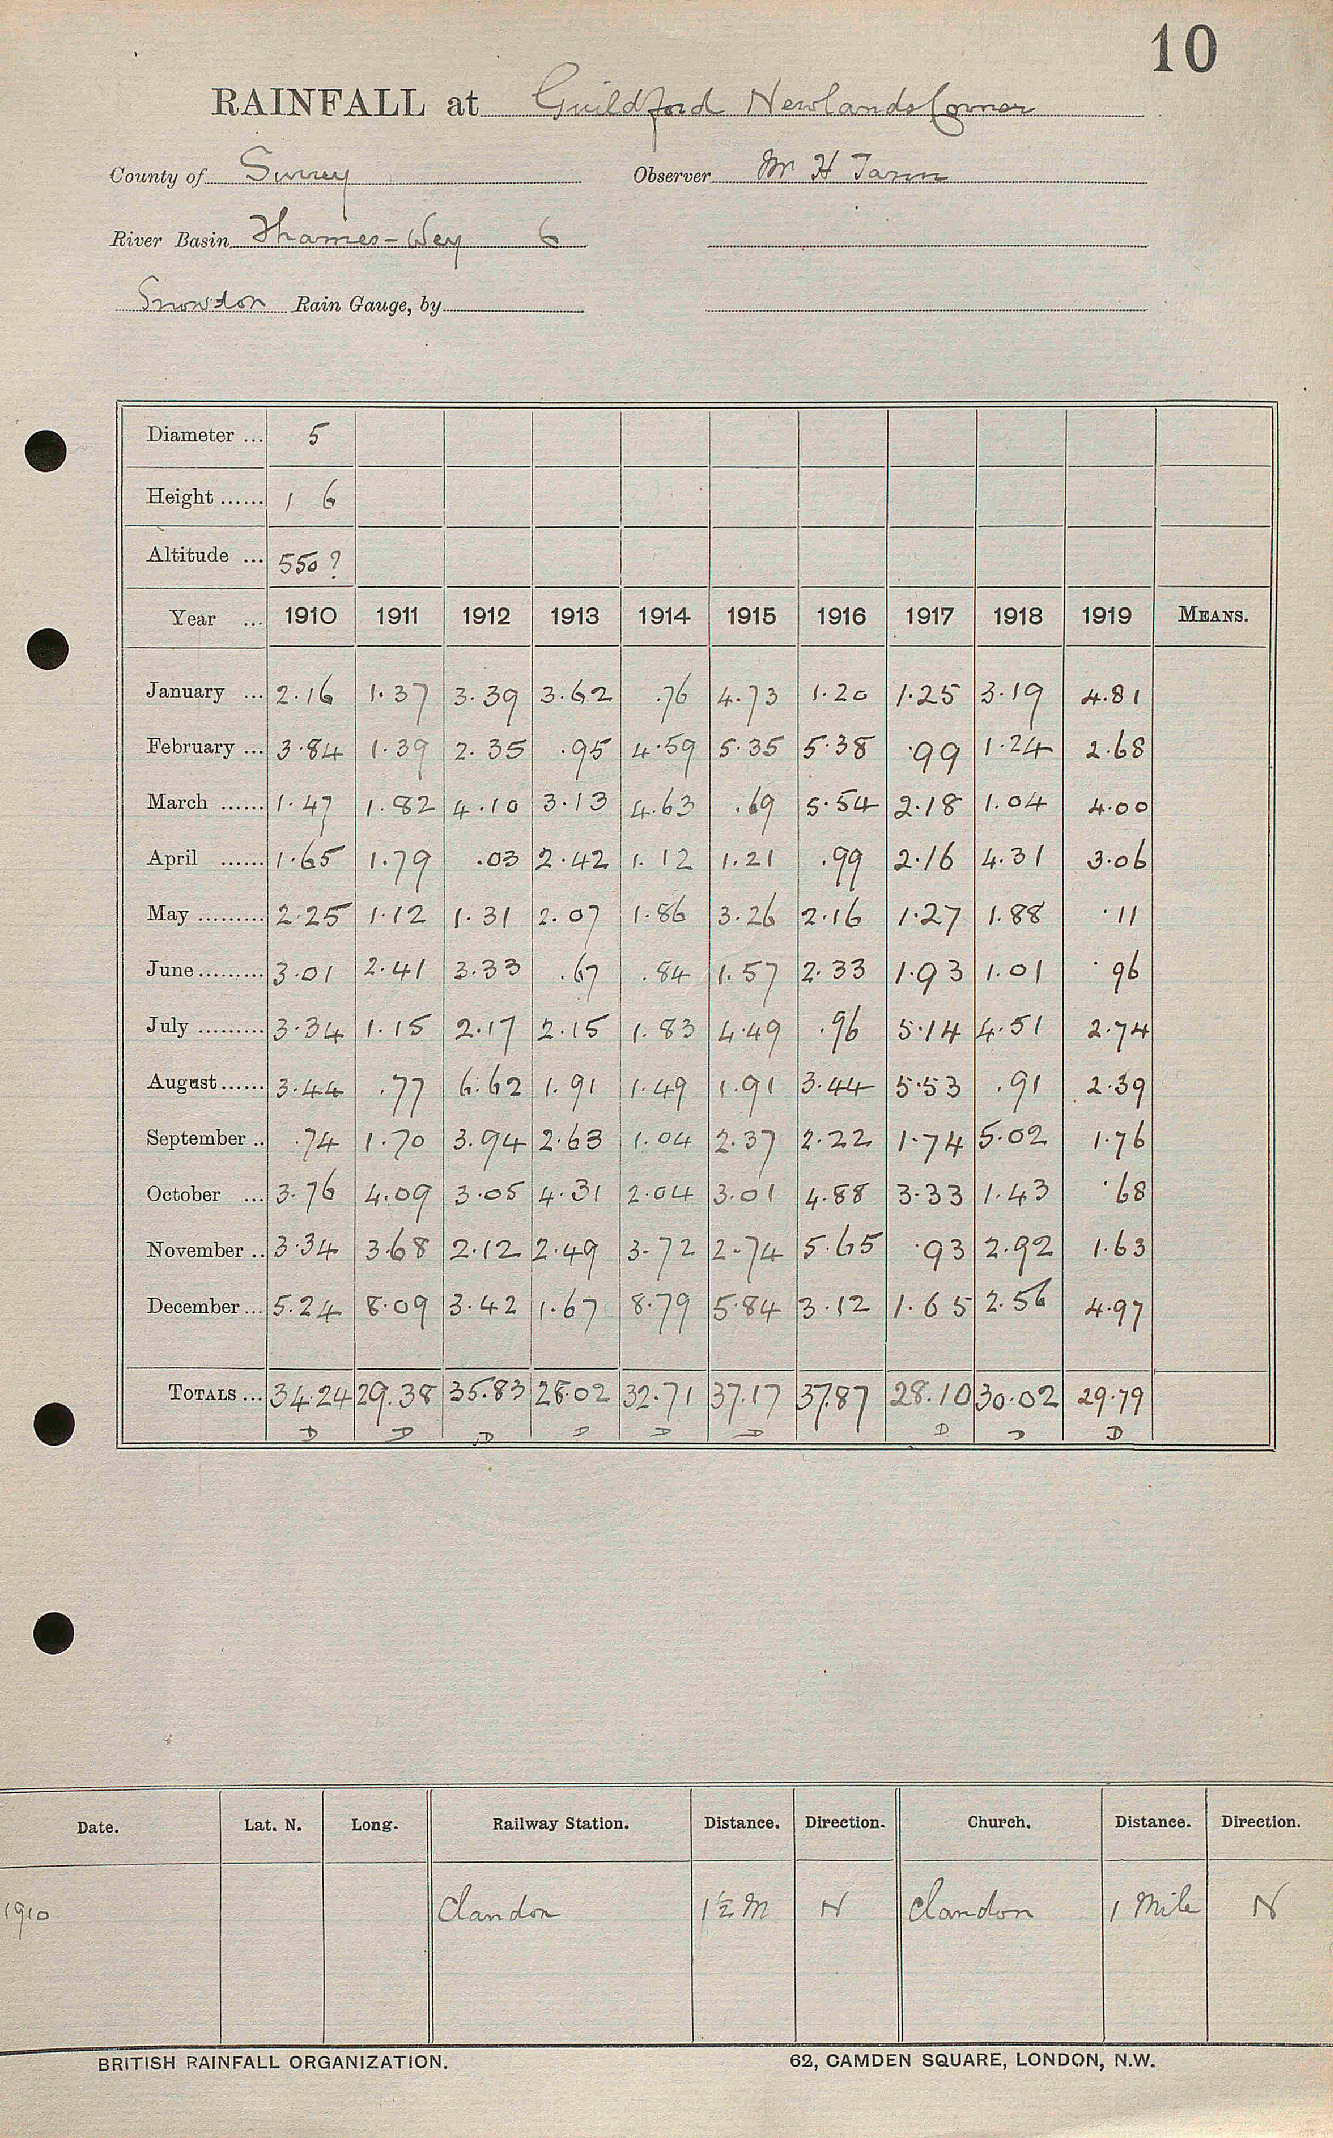 10
RAINFALL at Guildford Newlands Corner
County of Surrey Observer Mr H
River Basin Thames-Wey 6
Snowdon Rain Gauge, by
Diameter ... 5
Height ...... 1 6
Altitude ... 550?
Year ... 1910 1911 1912 1913 1914 1915 1916 1917 1918 1919 MEANS.
January ... 2.16 1.37 3.39 3.62 .76 4.73 1.20 1.25 3.19 4.81
February ... 3.84 1.39 2.35 .95 4.59 5.35 5.38 .99 1.24 2.68
March ...... 1.47 1.82 4.10 3.13 4.63 .69 5.54 2.18 1.04 4.00
April ...... 1.65 1.79 .03 2.42 1.12 1.21 .99 2.16 4.31 3.06
May ......... 2.25 1.12 1.31 2.07 1.86 3.26 2.16 1.27 1.88 .11
June ......... 3.01 2.41 3.33 .67 .84 1.57 2.33 1.93 1.01 .96
July ......... 3.34 1.15 2.17 2.15 1.83 4.49 .96 5.14 4.51 2.74
August ...... 3.44 .77 6.62 1.91 1.49 1.91 3.44 5.53 .91 2.39
September .. .74 1.70 3.94 2.63 1.04 2.37 2.22 1.74 5.02 1.76
October ... 3.76 4.09 3.05 4.31 2.04 3.01 4.88 3.33 1.43 .68
November .. 3.34 3.68 2.12 2.49 3.72 2.74 5.65 .93 2.92 1.63
December ... 5.24 8.09 3.42 1.67 8.79 5.84 3.12 1.65 2.56 4.97
TOTALS ... 34.24 29.38 35.83 28.02 32.71 37.17 37.87 28.10 30.02 29.79
D D D D D D D D D
Date. Lat. N. Long. Railway Station. Distance. Direction. Church. Distance. Direction.
1910 Clandon 1½ M N Clandon 1 Mile N
BRITISH RAINFALL ORGANIZATION. 62, CAMDEN SQUARE, LONDON, N.W.